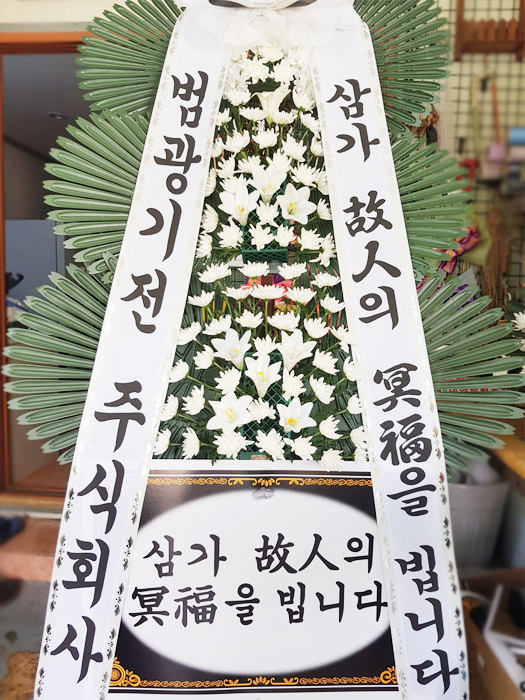 범광기전 주식회사
삼가 故人의 冥福을 빕니다
삼가 故人의
冥福을 빕니다